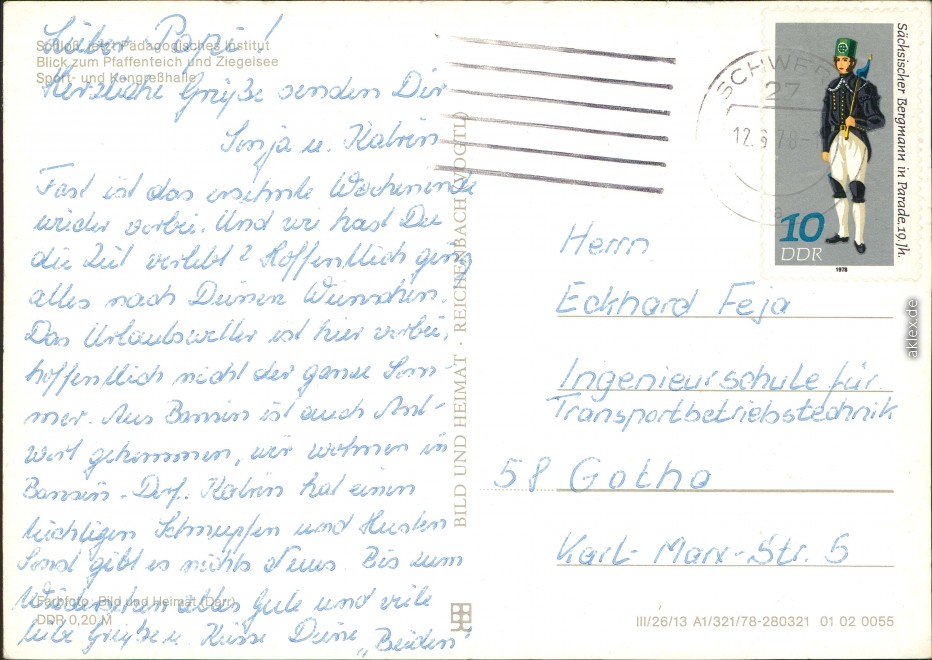 Schloß, jetzt Pädagogisches Institut
Blick zum Pfaffenteich und Ziegelsee
Sport- und Kongreßhalle
Lieber Papi!
Herzliche Grüße senden Dir
Sonja u. Katrin
Fast ist das ersehnte Wochenende
wieder vorbei. Und wie hast Du
die Zeit verlebt? Hoffentlich ging
alles nach Deinen Wünschen.
Das Urlaubswetter ist hier vorbei,
hoffentlich nicht der ganze Som-
mer. Aus Bansin ist auch Ant-
wort gekommen, wir wohnen in
Bansin-Dorf. Katrin hat einen
tüchtigen Schnupfen und Husten
Sonst gibt es nichts Neues. Bis zum
Wiedersehen alles Gute und viele
liebe Grüße u. Küsse Deine „Beiden"
Farbfoto: Bild und Heimat (Darr)
DDR 0,20 M
BILD UND HEIMAT · REICHENBACH (VOGTL)
SCHWE
27
12.6.78-1
Sächsischer Bergmann in Parade, 19. Jh.
10
DDR
1978
Herrn
Eckhard Feja
Ingenieurschule für
Transportbetriebstechnik
58 Gotha
Karl-Marx-Str. 5
III/26/13 A1/321/78-280321 01 02 0055
akpool.de